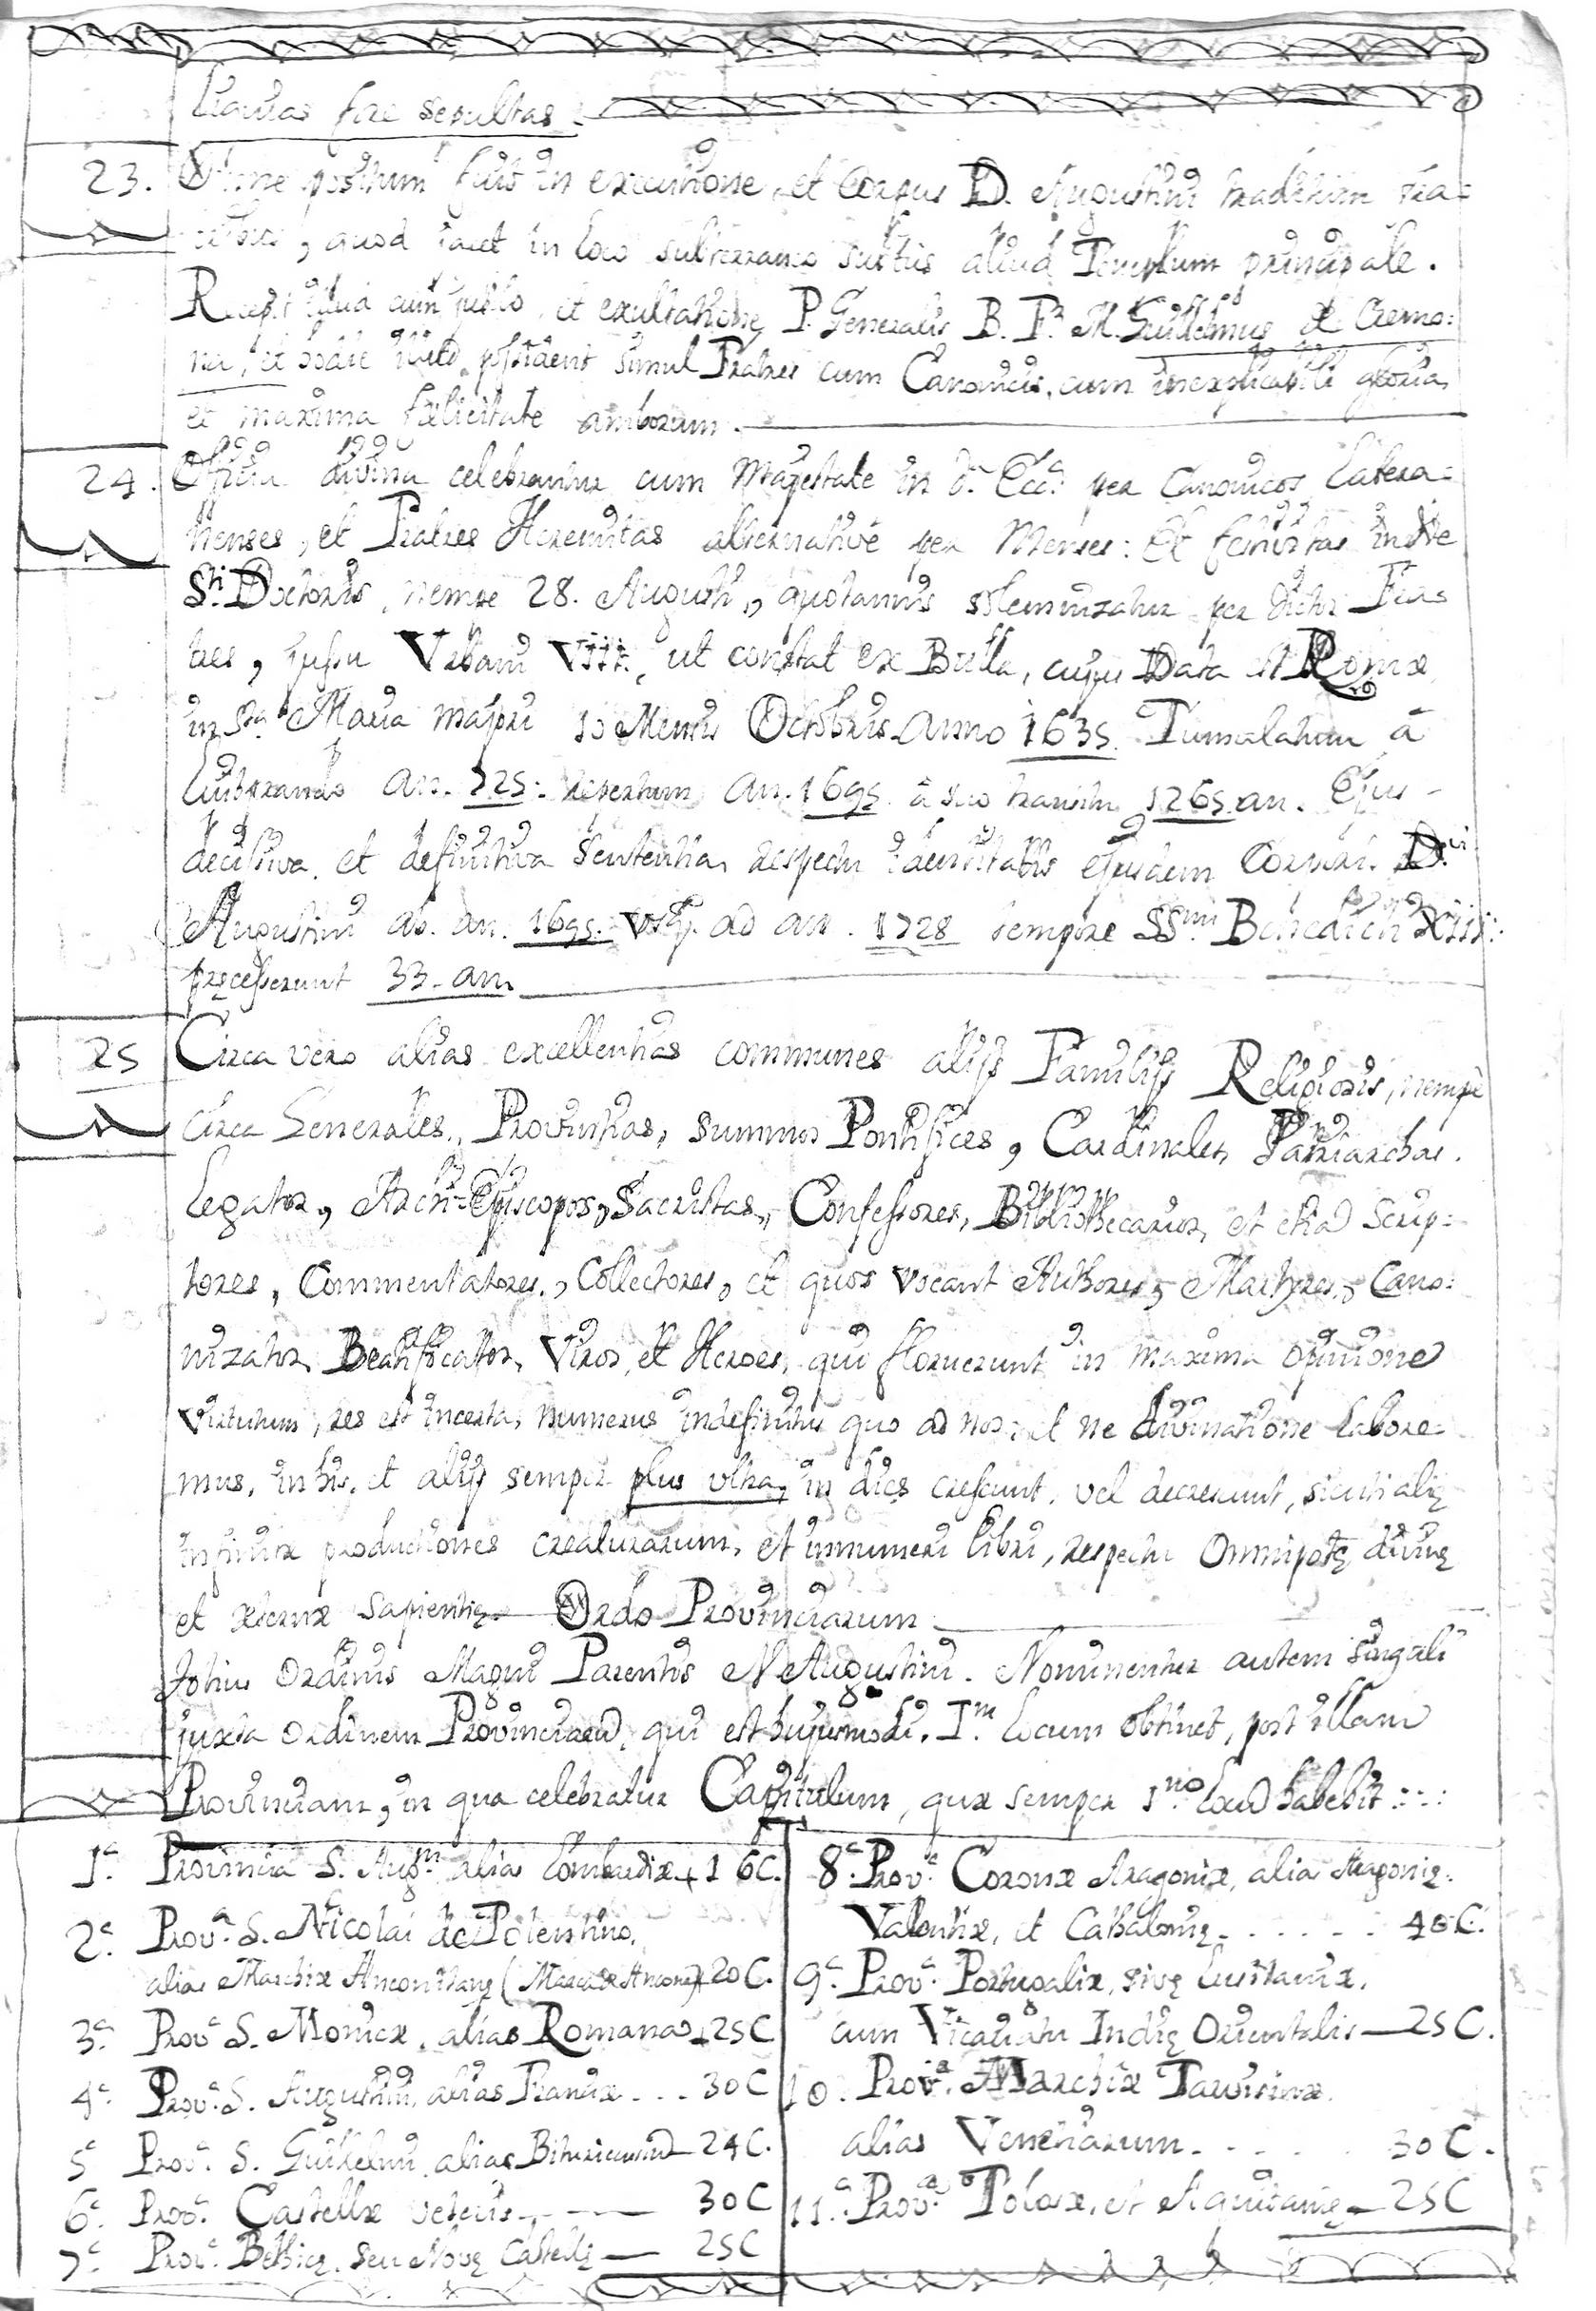 fre sepultas
23. positum fuit in executione, et Corpus D. Augustini traditum
quod iacet in loco subterraneo subtus aliud Templum principale.
Recepit illud cum et exultatione P. Generalis B. F. M. Guillelmus de Cremo:
na, et possident simul Fratres cum Canonicis, cum inexplicabili gloria,
et maxima felicitate amborum.
24. Officia divina celebrantur cum Majestate in d.ª Eccl.ª per Canonicos Latera=
nenses, et Fratres Heremitas alternativé per Menses: Et festivitas
S.ti Doctoris, nempe 28. Augusti, quotannis solemnizatur per dictos Fra=
tres, jussu Vrbani VIII., ut constat ex Bulla, cujus Data est Romæ
in S.ta Maria majori Mensis Octobris Anno 1635. Tumulatum à
Luitprando an. 725. repertum an. 1695. à suo transitu 1265. an. Ejus
decisiva, et definitiva sententia, respectu identitatis ejusdem Corporis D.vi
Augustini ab. an. 1695. vsq; ad an. 1728 tempore SS.mi Benedicti XIII:
præcesserunt 33. an.
25 Circa vero alias excellentias communes alijs Familijs Religiosis, nempè
circa Generales, Provintias, summos Pontifices, Cardinales, Patriarchas.
Legatos, Archi=Episcopos, Sacristas, Confessores, Bibliothecarios, et Scrip:
tores, Commentatores, Collectores, et quos vocant Authores, Martyres, Cano:
nizatos, Beatificatos, Viros, et Heroes, qui floruerunt in maxima opinione
virtutum, res est incerta, numerus indefinitus quo ad nos: et ne divinatione labore=
mus, in his, et alijs semper plus ultra, in dies crescunt, vel decrescunt, sicuti aliȩ
infinitæ productiones creaturarum, et innumeri libri, respectu Omnipotȩ divinȩ
et æternæ sapientiȩ Ordo Provinciarum
Totius Ordinis Magni Parentis N. Augustini. Nominentur autem singuli
juxta ordinem Provinciarũ, qui est hujusmodi. I.m locum obtinet, post illam
Provinciam, in qua celebratur Capitulum, quæ semper 1.mo locũ habebit
1.ª Provincia S. Aug.ni alias Lombardiæ 16C.
2.ª Prov.ª S. Nicolai de Tolentino,
alias Marchiæ Anconitanȩ (Marca de Ancona) 20C.
3.ª Prov.ª S. Monicæ, alias Romana 25C
4.ª Prov.ª S. Augustini, alias Franciæ 30C
5.ª Prov.ª S. Guilhelmi, alias 24C.
6.ª Prov.ª Castellæ veteris 30C
7.ª Prov.ª Bethicȩ, seu Novȩ Castellȩ 25C
8.ª Prov.ª Coronæ Aragoniæ, alias Aragoniȩ,
Valentiæ, et Cathaloniȩ 40C.
9.ª Prov.ª Portugaliæ, sivȩ Lusitaniæ,
cum Vicariatu Indiȩ Orientalis 25C.
10. Prov.ª Marchiæ Tarvisinæ,
alias Venetiarum 30C.
11.ª Prov.ª Tolosæ, et Aquitaniȩ 25C